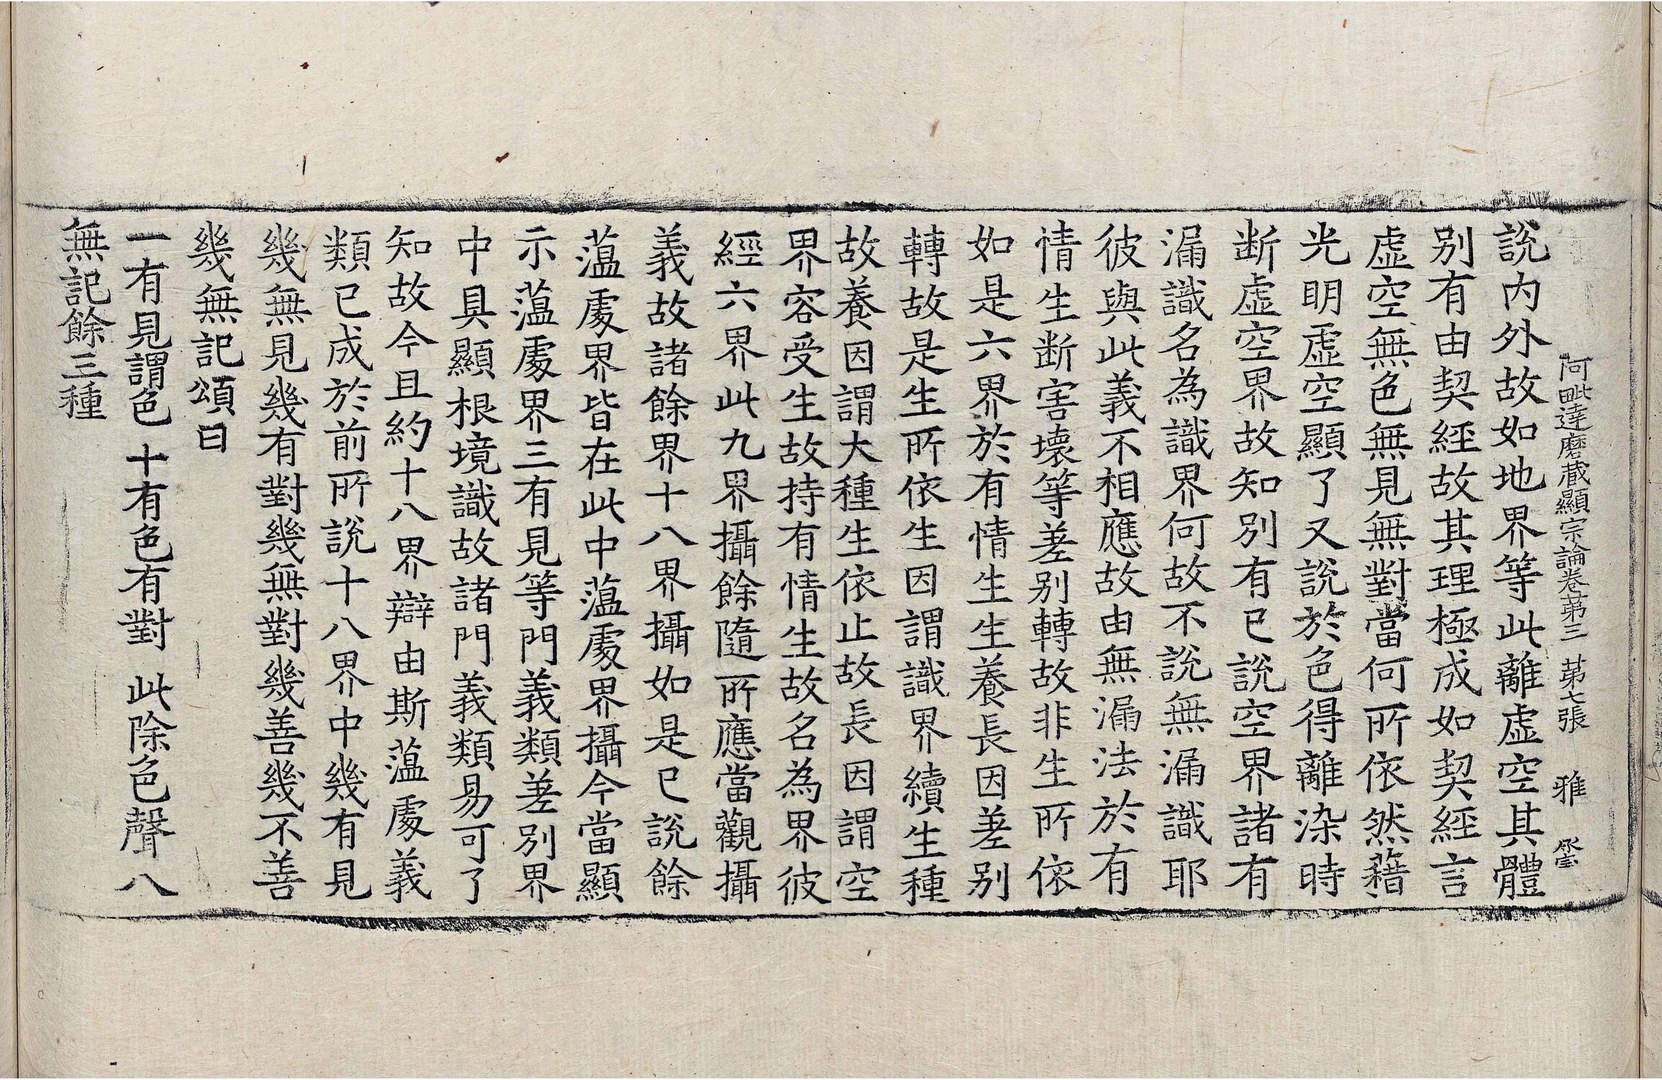 阿毗達磨藏顯宗論卷第三 第七張 雅
說內外故如地界等此離虛空其體
別有由契經故其理極成如契經言
虛空無色無見無對當何所依然藉
光明虛空顯了又說於色得離染時
断虛空界故知別有已說空界諸有
漏識名為識界何故不說無漏識耶
彼與此義不相應故由無漏法於有
情生断害壞等差别轉故非生所依
如是六界於有情生生養長因差别
轉故是生所依生因謂識界續生種
故養因謂大種生依止故長因謂空
界容受生故持有情生故名為界彼
經六界此九界攝餘隨所應當觀攝
義故諸餘界十八界攝如是已說餘
蕰處界皆在此中蕰處界攝今當顯
示蕰處界三有見等門義類差別界
中具顯根境識故諸門義類易可了
知故今且約十八界辯由斯蕰處義
類已成於前所說十八界中幾有見
幾無見幾有對幾無對幾善幾不善
幾無記頌曰
一有見謂色 十有色有對 此除色聲八
無記餘三種